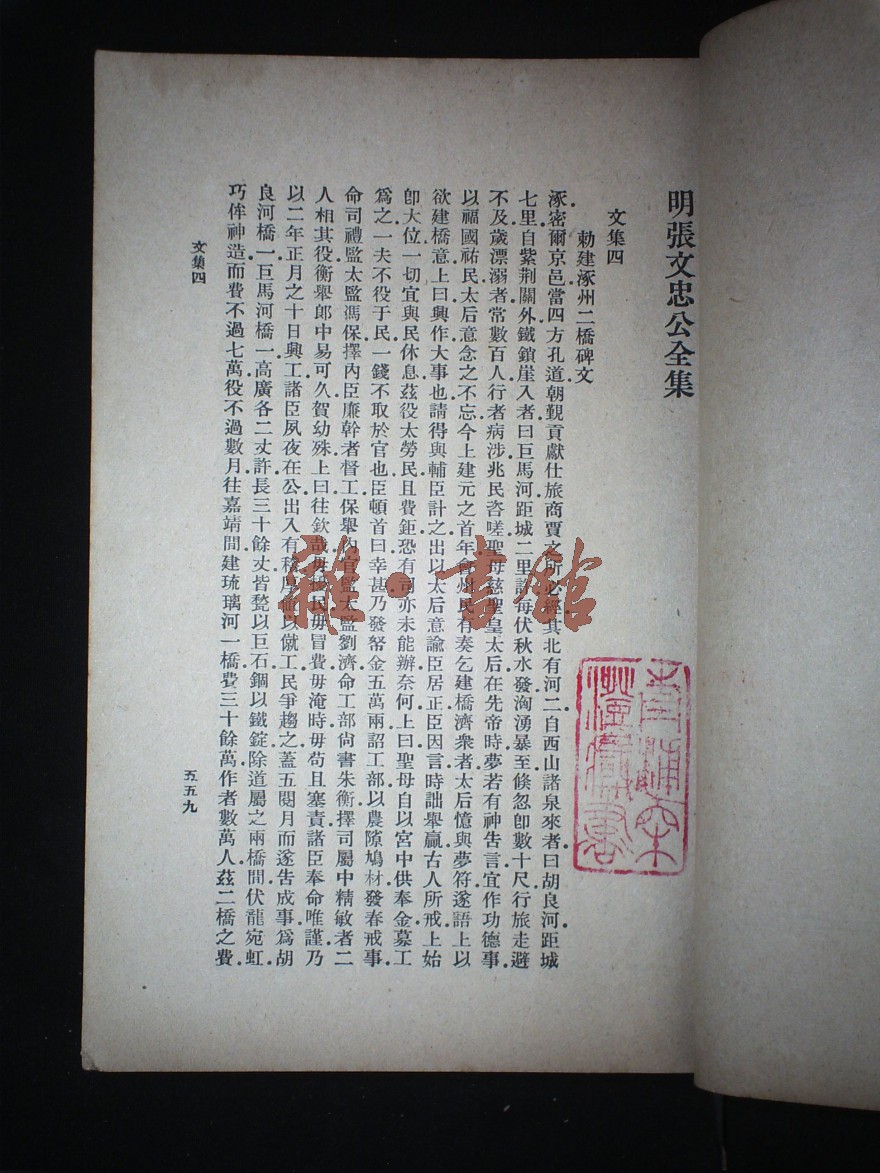 明張文忠公全集
文集四
勅建涿州二橋碑文
涿密爾京邑當四方孔道朝覲貢獻仕旅商賈之所必經其北有河二自西山諸泉來者曰胡良河距城
七里自紫荆關外鐵鎖崖入者曰巨馬河距城二里許每伏秋水發洶湧暴至倏忽卽數十尺行旅走避
不及歲漂溺者常數百人行者病涉兆民咨嗟聖母慈聖皇太后在先帝時夢若有神告言宜作功德事
以福國祐民太后意念之不忘今上建元之首年會州民有奏乞建橋濟衆者太后憶與夢符遂語上以
欲建橋意上曰興作大事也請得與輔臣計之出以太后意諭臣居正臣因言時詘舉贏古人所戒上始
卽大位一切宜與民休息茲役太勞民且費鉅恐有司亦未能辦奈何上曰聖母自以宮中供奉金募工
爲之一夫不役于民一錢不取於官也臣頓首曰幸甚乃發帑金五萬兩詔工部以農隙鳩材發春戒事
命司禮監太監馮保擇內臣廉幹者督工保舉內官監太監劉濟命工部尙書朱衡擇司屬中精敏者二
人相其役衡舉郎中易可久賀幼殊上曰往欽哉毋擾民毋冒費毋淹時毋苟且塞責諸臣奉命唯謹乃
以二年正月之十日興工諸臣夙夜在公出入有稽厚直以僦工民爭趨之蓋五閱月而遂告成事爲胡
良河橋一巨馬河橋一高廣各二丈許長三十餘丈皆甃以巨石錮以鐵錠除道屬之兩橋間伏龍宛虹
巧侔神造而費不過七萬役不過數月往嘉靖間建琉璃河一橋費三十餘萬作者數萬人茲二橋之費
文集四
五五九
雜·書館